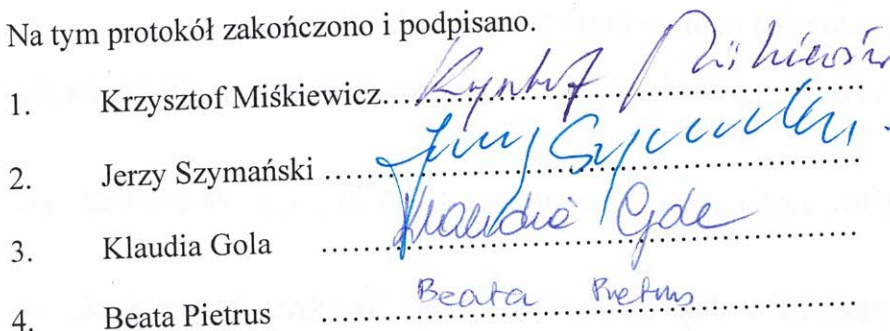 Na tym protokół zakończono i podpisano.
1. Krzysztof Miśkiewicz.......... Krzysztof Miśkiewicz
2. Jerzy Szymański .......... Jerzy Szymański
3. Klaudia Gola .......... Klaudia Gola
4. Beata Pietrus .......... Beata Pietrus